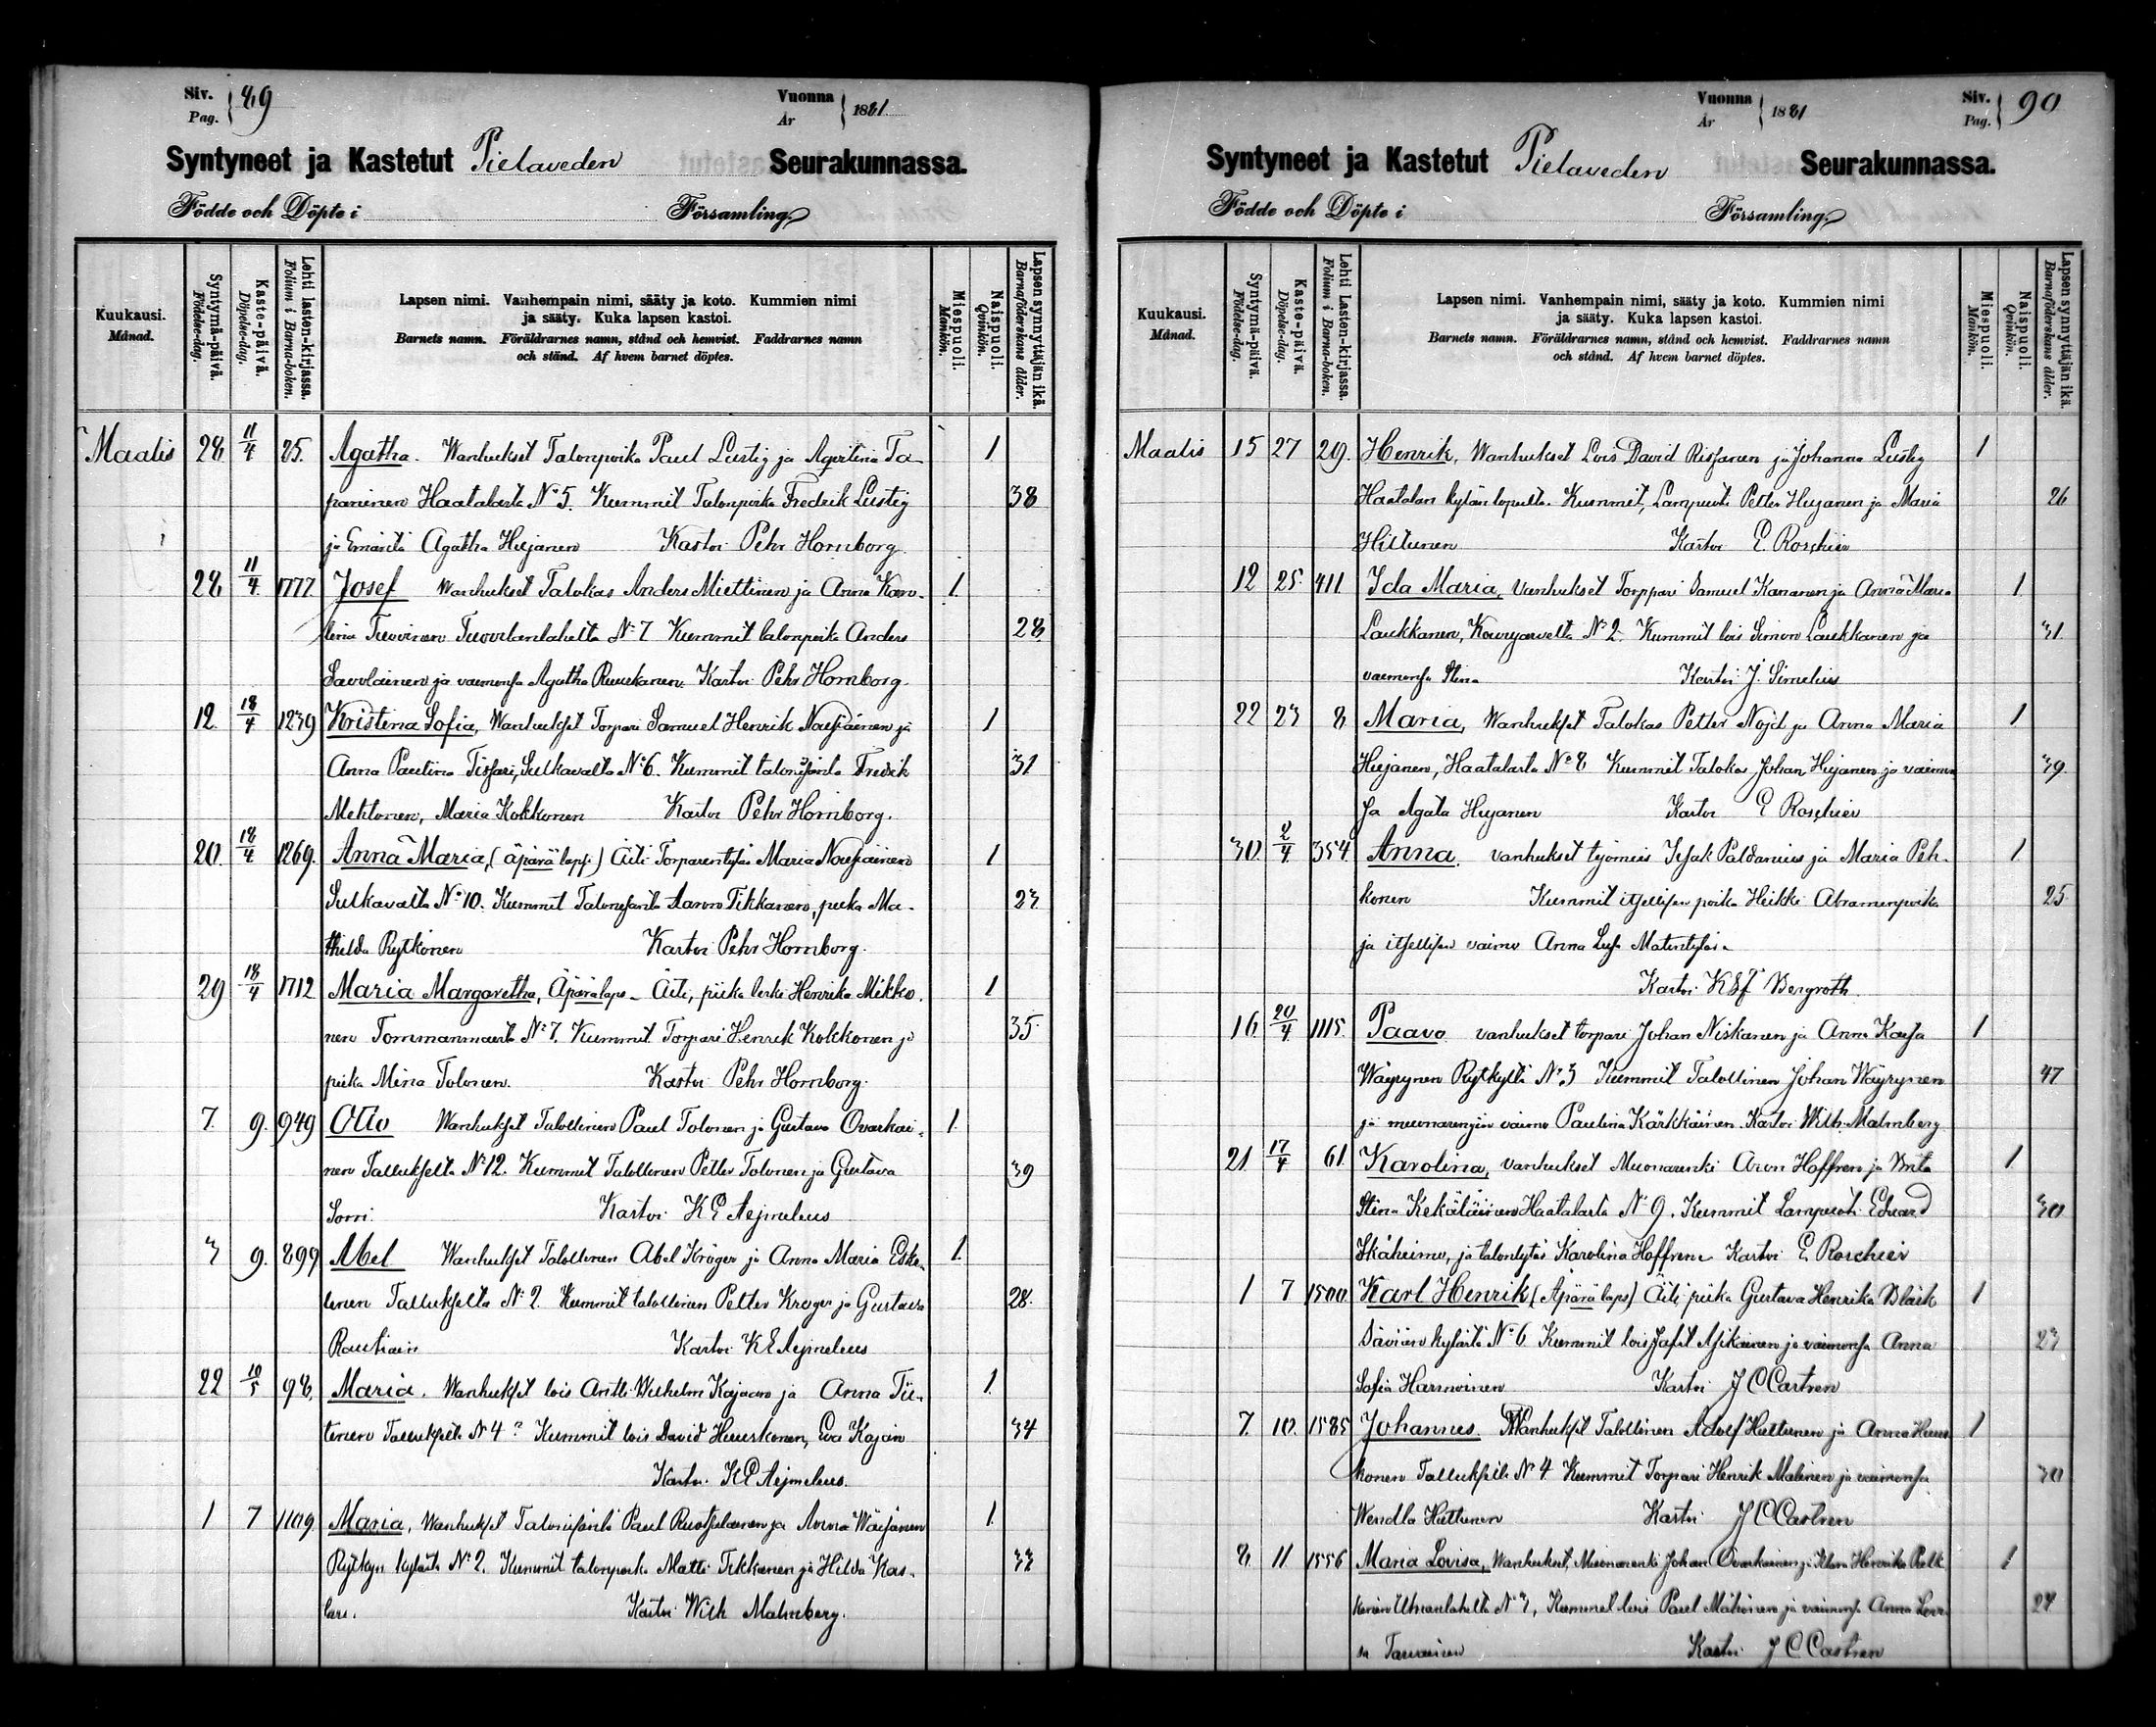 Siv. Pag. 89
Vuonna År 1881.
Syntyneet ja Kastetut Pielaveden Seurakunnassa.
Födde och Döpte i Församling.
Kuukausi. Månad.
Syntymä-päivä. Födelse-dag.
Kaste-päivä. Döpelse-dag.
Lehti lasten-kirjassa. Folium i Barna-boken.
Lapsen nimi. Vanhempain nimi, sääty ja koto. Kummien nimi
ja sääty. Kuka lapsen kastoi.
Barnets namn. Föräldrarnes namn, stånd och hemvist. Faddrarnes namn
och stånd. Af hvem barnet döptes.
Miespuoli. Mankön.
Naispuoli. Qvinkön.
Lapsen synnyttäjän ikä. Barnaföderskans ålder.
Maalis 28 11/4 25. Agatha. Wanhukset Talonpoika Paul Lustig ja Agertina Ta- 1
paninen Haatalasta No 5. Kummit Talonpoika Fredrik Lustig 38
ja Emäntä Agatha Hujanen Kastoi Pehr Hornborg.
28 11/4 1777. Josef Wanhukset Talokas Anders Miettinen ja Anna Karo- 1.
lina Tuovinen Tuovilanlahelta No 7 Kummit talonpoika Anders 28
Savolainen ja vaimonsa Agatha Ruuskanen. Kastoi Pehr Hornborg.
12. 18/4 1239 Kristina Sofia, Wanhukset Torpari Samuel Henrik Nousiainen ja 1
Anna Paulina Tissari, Sulkavalta No 6. Kummit talonisäntä Fredrik 31
Mehtonen, Maria Kokkonen Kastoi Pehr Hornborg.
20. 18/4 1269. Anna Maria, (äpärä lapsi) Äiti Torparentytär Maria Nousiainen 1
Sulkavalta No 10. Kummit Talonisäntä Aaron Tikkanen, piika Ma- 23
thilda Rytkönen Kastoi Pehr Hornborg.
29 18/4 1712 Maria Margaretha, Äpärälaps. Äiti, piika leski Henrika Mikko- 1
nen Tommanmäestä No 7. Kummit Torpari Henrik Kokkonen ja 35.
piika Mina Tolonen. Kastoi Pehr Hornborg.
7. 9. 949 Otto Wanhukset Talollinen Paul Tolonen ja Gustava Ovaskai- 1.
nen Tallukselta No 12. Kummit Talollinen Petter Tolonen ja Gustava 39
Sorri. Kastoi K E Aejmeleus
3 9. 899 Abel Wanhukset Talollinen Abel Kröger ja Anna Maria Eske- 1.
linen Tallukselta No 2. Kummit talollinen Petter Kröger ja Gustava 28.
Rautiain Kastoi K E Aejmeleus
22 10/5 98. Maria. Wanhukset lois Antti Wilhelm Kajaan ja Anna Tii- 1.
tinen Tallukselta No 4. Kummit lois David Huuskonen, Eva Kajan 34
Kastoi K E Aejmeleus.
1 7 1109 Maria, Wanhukset Talonisäntä Paul Ruotsalainen ja Anna Wäisänen 1.
Rytkyn kylästä No 2. Kummit talonpoika Matti Tikkanen ja Hilda Kas- 33
lari. Kastoi Wilh Malmberg.
Vuonna År 1881
Siv. Pag. 90
Syntyneet ja Kastetut Pielaveden Seurakunnassa.
Födde och Döpte i Församling.
Kuukausi. Månad.
Syntymä-päivä. Födelse-dag.
Kaste-päivä. Döpelse-dag.
Lehti Lasten-kirjassa. Folium i Barna-boken.
Lapsen nimi. Vanhempain nimi, sääty ja koto. Kummien nimi
ja sääty. Kuka lapsen kastoi.
Barnets namn. Föräldrarnes namn, stånd och hemvist. Faddrarnes namn
och stånd. Af hvem barnet döptes.
Miespuoli. Mankön.
Naispuoli. Qvinkön.
Lapsen synnyttäjän ikä. Barnaföderskans ålder.
Maalis 15 27 29. Henrik, Wanhukset Lois David Rissanen ja Johanna Lustig 1
Haatalan kylän lopulta. Kummit, Lampuoti Petter Hujanen ja Maria 26
Hiltunen Kastoi E Roschier
12 25. 411 Ida Maria, Vanhukset Torppari Samuel Kananen ja Anna Maria 1
Laukkanen, Kourujärveltä No 2. Kummit lois Simon Laukkanen ja 31.
vaimonsa Stina Kastoi J. Simelius
22 23 8. Maria, Wanhukset Talokas Petter Nöjd ja Anna Maria 1
Hujanen, Haatalasta No 8 Kummit Talokas Johan Hujanen ja vaimon 39.
sa Agata Hujanen Kastoi E Roschier
30. 2/4 354 Anna. vanhukset työmies Isak Paldanius ja Maria Peh- 1.
konen Kummit itsellisen poika Heikki Abramenpoika 25.
ja itsellisen vaimo Anna Lisa Matintytär.
Kastoi K St Bergroth.
16. 20/4 1115. Paavo vanhukset torpari Johan Niskanen ja Anna Kaisa 1
Wäyrynen Rytkyltä No 3 Kummit Talollinen Johan Wäyrynen 47
ja muonarengin vaimo Paulina Kärkkäinen. Kastoi Wilh. Malmberg
21. 17/4 61. Karolina, vanhukset Muonarenki Aron Hoffren ja Brita 1.
Stina Kekäläinen Haatalasta No 9. Kummit Lampuoti Eduard 30
Skåheimo, ja talontytär Karolina Hoffren Kastoi E. Roschier
1 7 1500. Karl Henrik, (Äpärä laps) Äiti piika Gustava Henrika Bläck 1
Säviän kylästä No 6 Kummit lois Jafet Asikainen ja vaimonsa Anna 23
Sofia Harmoinen Kastoi J C Castren
7. 10. 1585 Johannes. Wanhukset Talollinen Adolf Huttunen ja Anna Huus 1
konen Tallukselta No 4 Kummit Torpari Henrik Malinen ja vaimonsa 30
Wendla Huttunen Kastoi J C Castren
8 11 1556 Maria Lovisa, Wanhukset, Muonarenki Johan Ovaskainen ja Klara Henrika Pulk 1
kinen No 3, Kummit lois Paul Mähönen ja vaimonsa Anna Lovi 24
sa Tarvainen Kastoi J C Castren